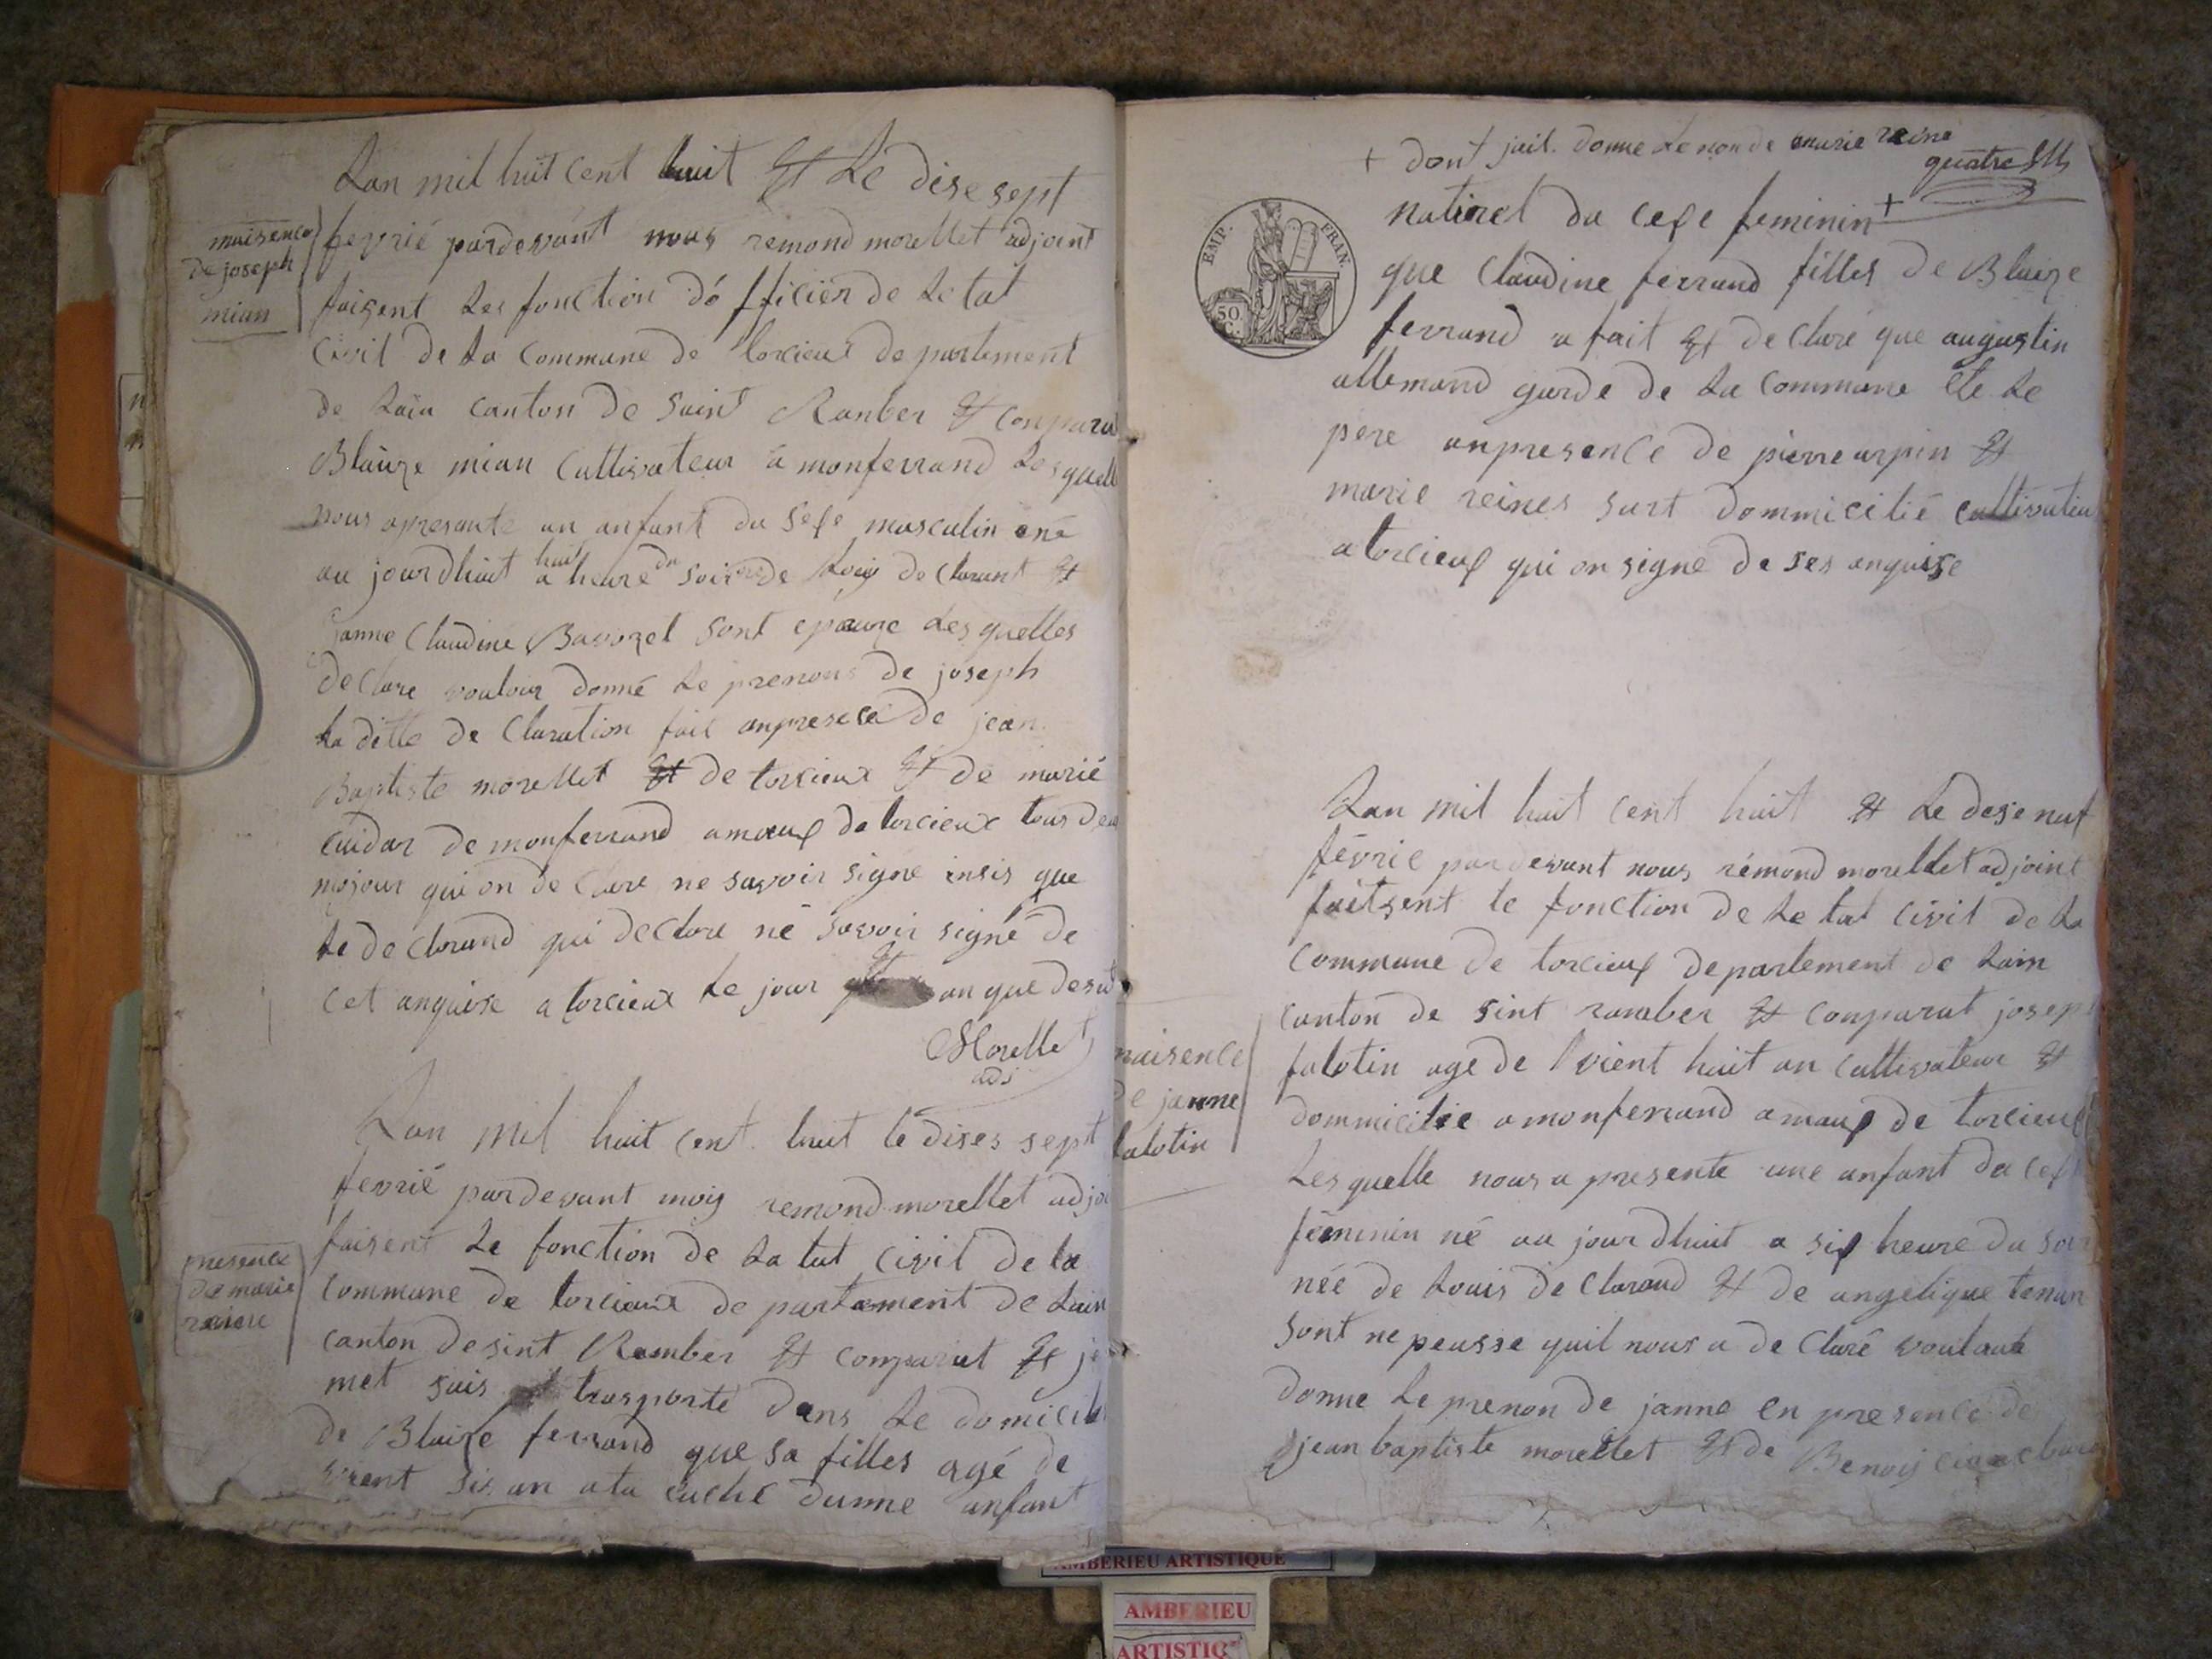 Lan mil huit cent huit Et Le dise sept
naisence
de joseph
mian
fevrié pardevant nous remond morellet adjoint
faisent Les fonction dófficier de Letat
civil de La commune de torcieux departement
de Lain canton de Saint Ranber Et conparu
Blaize mian Cultivateur a monferrand Lesquell
nous apresante un anfant du Sexe masculin éné
au jourdhuit a huit heure du soir de Declarant Et
janne Claudine Bavozet sont epauze desquelles
declare vouloir donné Le prenons de joseph
La ditte de Claration fait anpresece de jean
Baptiste morellet Et de torcieux Et de marié
cuidar de monferrand amaux de torcieux tous deu
mojour qui on de Clare ne savoir signe insis que
Le de Clarand qui declare né savoir signé de
cet anguise a torcieux Le jour Et an que desu
Morellet
adj
Lan mil huit cent huit le dises sept
fevrié pardevant mois remond morellet adjoi
faisent Le fonction de La tut civil de la
presence
de marie
raine
commune de torcieux de partament de Lain
canton desint Rember Et comparut Et je
met suis trasporté dans Le domicil
de Blaize ferrand que sa filles agé de
vient sis an ata cuché dunne anfant
+ dont jait donne Le non de marie raine
quatre
EMP. FRAN.
50 C.
naturel du cexe feminin +
que Claudine ferrand filles de Blaize
ferrand a fait Et declaré que augustin
allemand garde de La commune ete Le
pere anpresence de pierre arpin Et
marie reines surt dommicilié cultivateu
a torcieux qui on signe de ses anguise
Lan mil huit cent huit Et Le dese nuf
févrie pardevant nous rémond morellet adjoint
faitsent le fonction de Le tat civil de La
commune de torcieux departement de Lain
canton de sint ramber Et comparut josep
naisence
de janne
falotin
falotin age de vient huit an cultivateur Et
dommicilie a monferrand amaux de torcieux
Lesquelle nous a presente une anfant du cex
féminin né au jourdhuit a six heure du soir
née de Louis de Clarand Et de angelique tenan
sont nepeusse quil nous a de Claré voulant
donne Le prenon de janne en presence de
jean baptiste morellet Et de Benois
AMBERIEU ARTISTIQUE
AMBERIEU
ARTISTIQ